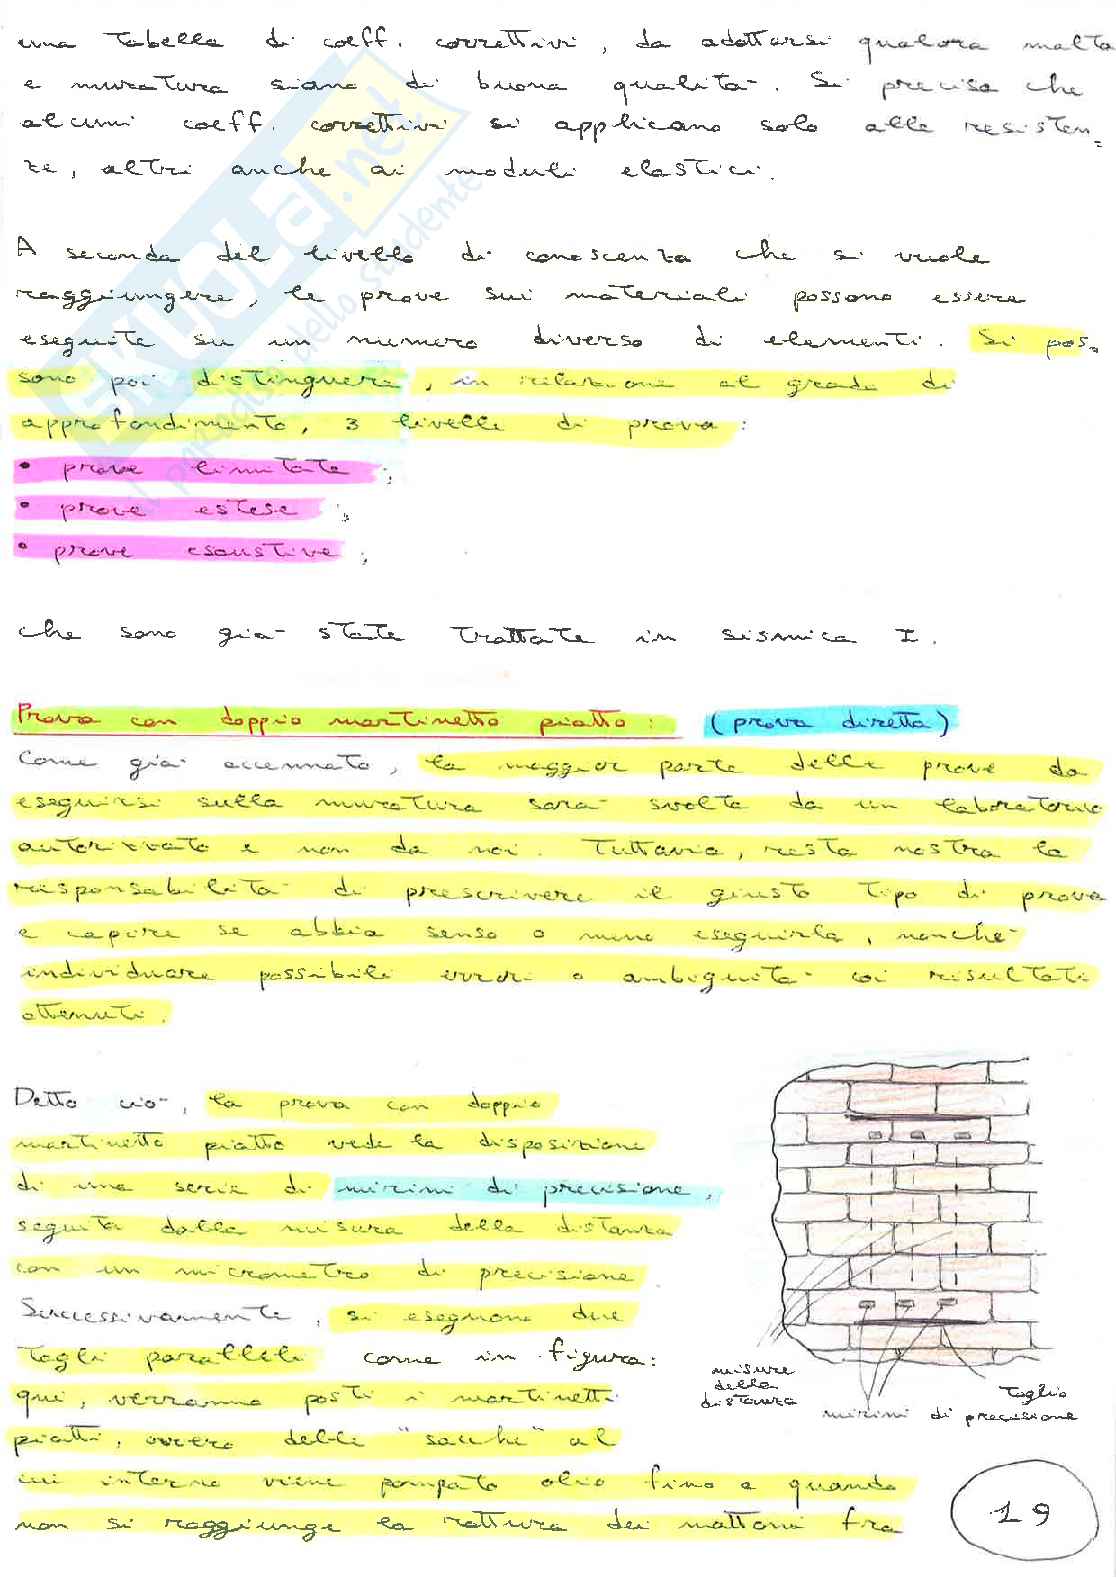 una tabella di coeff. correttivi, da adottarsi qualora malta
e muratura siano di buona qualità. Si precisa che
alcuni coeff. correttivi si applicano solo alle resisten-
ze, altri anche ai moduli elastici.
A seconda del livello di conoscenza che si vuole
raggiungere, le prove sui materiali possono essere
eseguite su un numero diverso di elementi. Si pos-
sono poi distinguere, in relazione al grado di
approfondimento, 3 livelli di prova:
• prove limitate;
• prove estese;
• prove esaustive;
che sono già state trattate in sismica I.
Prova con doppio martinetto piatto: (prova diretta)
Come già accennato, la maggior parte delle prove da
eseguirsi sulla muratura sarà svolta da un laboratorio
autorizzato e non da noi. Tuttavia, resta nostra la
responsabilità di prescrivere il giusto tipo di prova
e capire se abbia senso o meno eseguirla, nonché
individuare possibili errori o ambiguità coi risultati
ottenuti.
Detto ciò, la prova con doppio
martinetto piatto vede la disposizione
di una serie di mirini di precisione,
seguita dalla misura della distanza
con un micrometro di precisione.
Successivamente, si eseguono due
tagli paralleli come in figura:
qui, verranno posti i martinetti
piatti, ovvero delle "sacche" al
cui interno viene pompato olio fino a quando
non si raggiunge la rottura dei mattoni fra
misure
della
distanza
taglio
mirini di precisione
19
SKUOLA.net
il paradiso dello studente